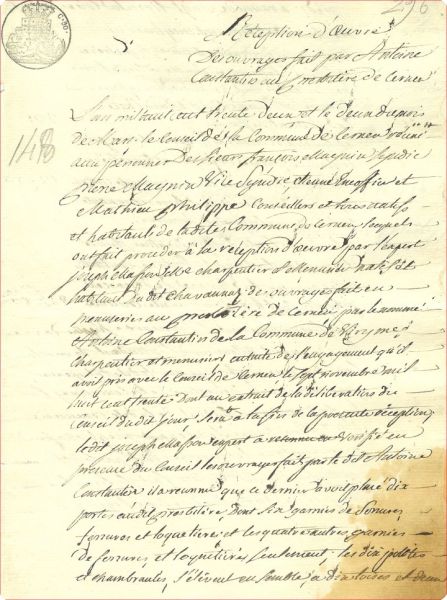 296
Réception d'œuvre
Des ouvrages fait par Antoine
Constantin au presbitère de Cernex
L'an mil huit cent trente deux et le deux du mois
de Mars le Conseil de la Commune de Cernex réuni
aux personnes des sieurs françois Magnin Syndic
pierre Magnin Vice Syndic, et
148
Mathieu philippe Conseillers et tous natifs
et habitant de la dite Commune de Cernex, lesquels
ont fait procéder à la réception d'œuvre par l'expert
joseph charpentier et Menuisier natif et
habitant du dit Chavannaz des ouvrages fait en
menuiserie au presbitère de Cernex par le nommé
Antoine Constantin de la Commune de
Charpentier et menuisier ensuite de l'engagement qu'il
avoit pris avec le Conseil de Cernex le sept novembre mil
huit cent trente dont un extrait de la délibération du
Conseil du dit jour, sera à la fin de la présente réception,
le dit joseph expert a vérifié en
présence du Conseil les ouvrages fait par le dit Antoine
Constantin il a reconnu que ce dernier avoit placé dix
portes au dit presbitère, dont six garnies de serrures
ferrures et loquetières et les quatre autres garnies
de ferrures, et loquetières seulement. les dix portes
et chambranles, s'élèvent ensemble, à dix toises et demi